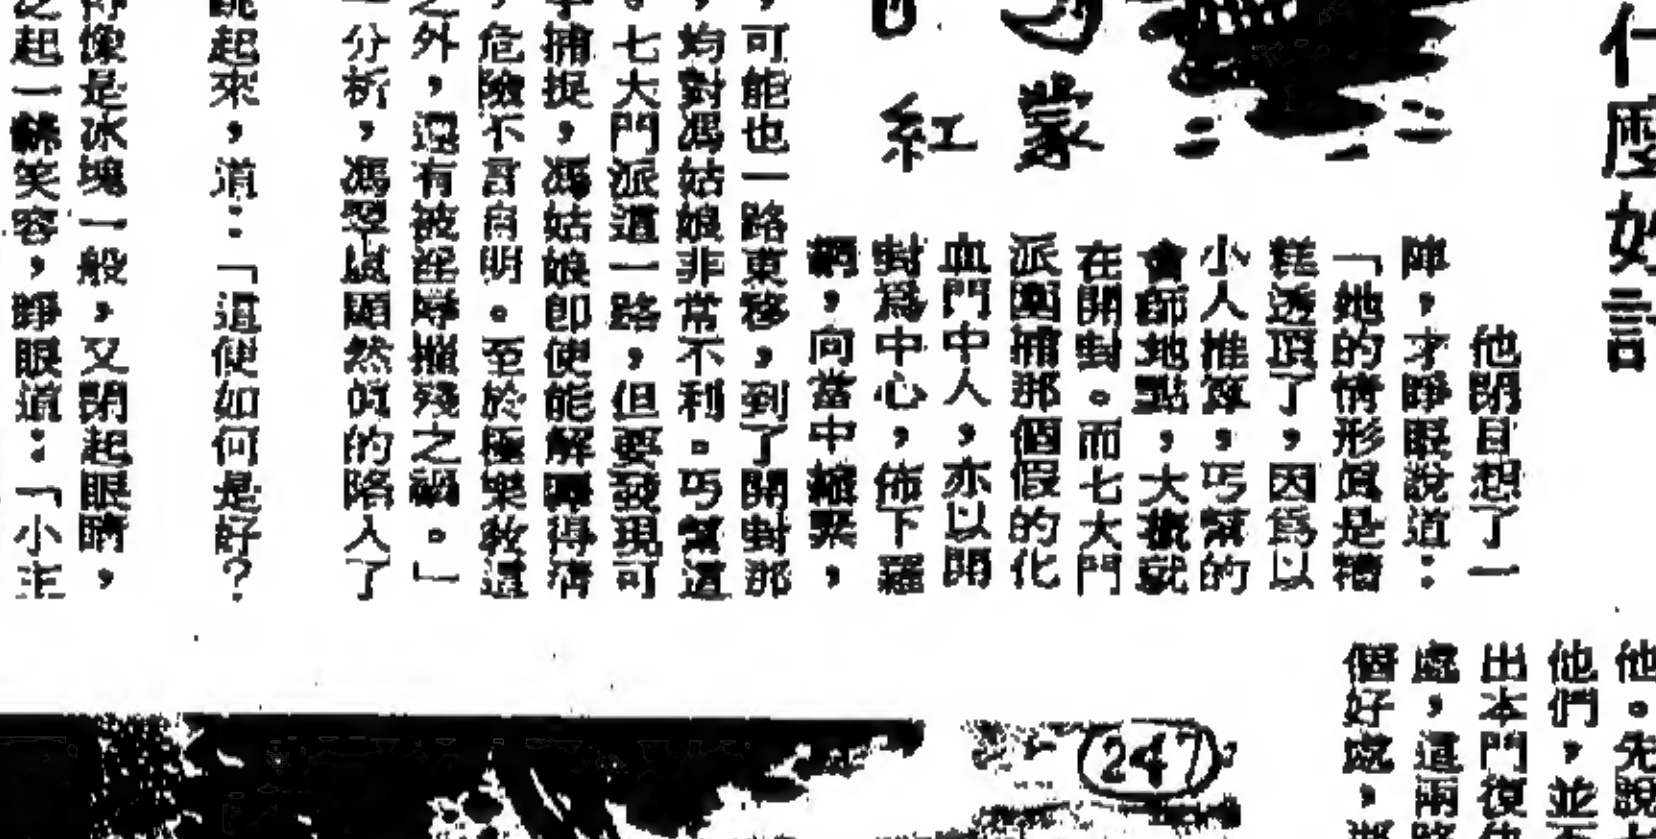 什麼妙計
蒙
紅
他閉目想了一
陣，才睜眼說道：
「她的情形眞是糟
糕透頂了，因爲以
小人推算，丐幫的
會師地點，大概就
在開封。而七大門
派圍捕那個假的化
血門中人，亦以開
封爲中心，佈下羅
網，向當中縮緊，
，可能也一路東移，到了開封那
，均對馮姑娘非常不利。丐幫這
。七大門派這一路，但要發現可
捕捉，馮姑娘即使能解釋得清
，危險不言自明。至於極樂教這
之外，還有被淫辱摧殘之禍。」
一分析，馮翠嵐顯然眞的陷入了
跳起來，道：「這便如何是好？
像是冰塊一般，又閉起眼睛，
起一絲笑容，睜眼道：「小主
他。先說
他們，並
出本門復
處，這兩路
個好處，那
247